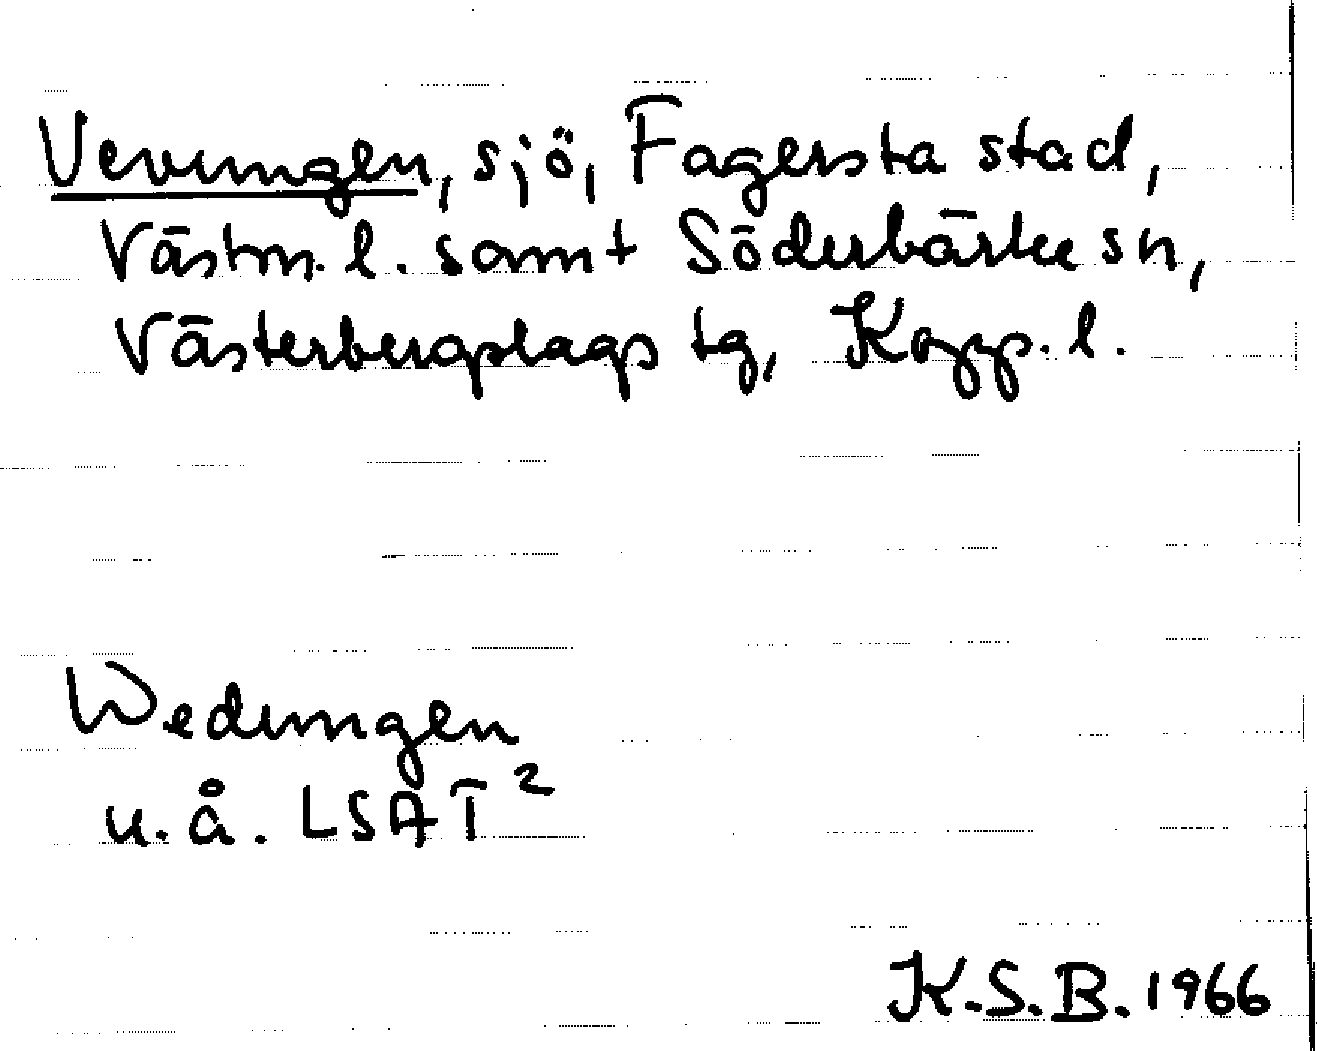 Vevungen, sjö, Fagersta stad,
Västm. l. samt Söderbärke sn,
Västerbergslags tg, Kopp. l.
Wedungen
u.å. LSAT²
K.S.B. 1966